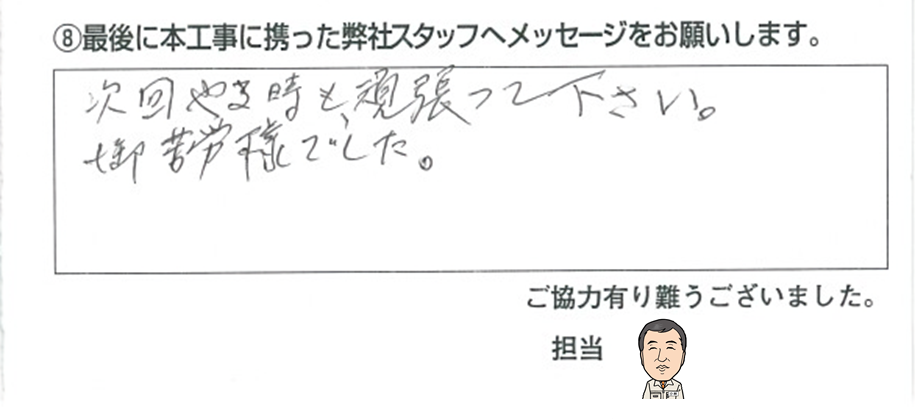 ⑧最後に本工事に携った弊社スタッフへメッセージをお願いします。
次回やる時も、頑張って下さい。
御苦労様でした。
ご協力有り難うございました。
担当